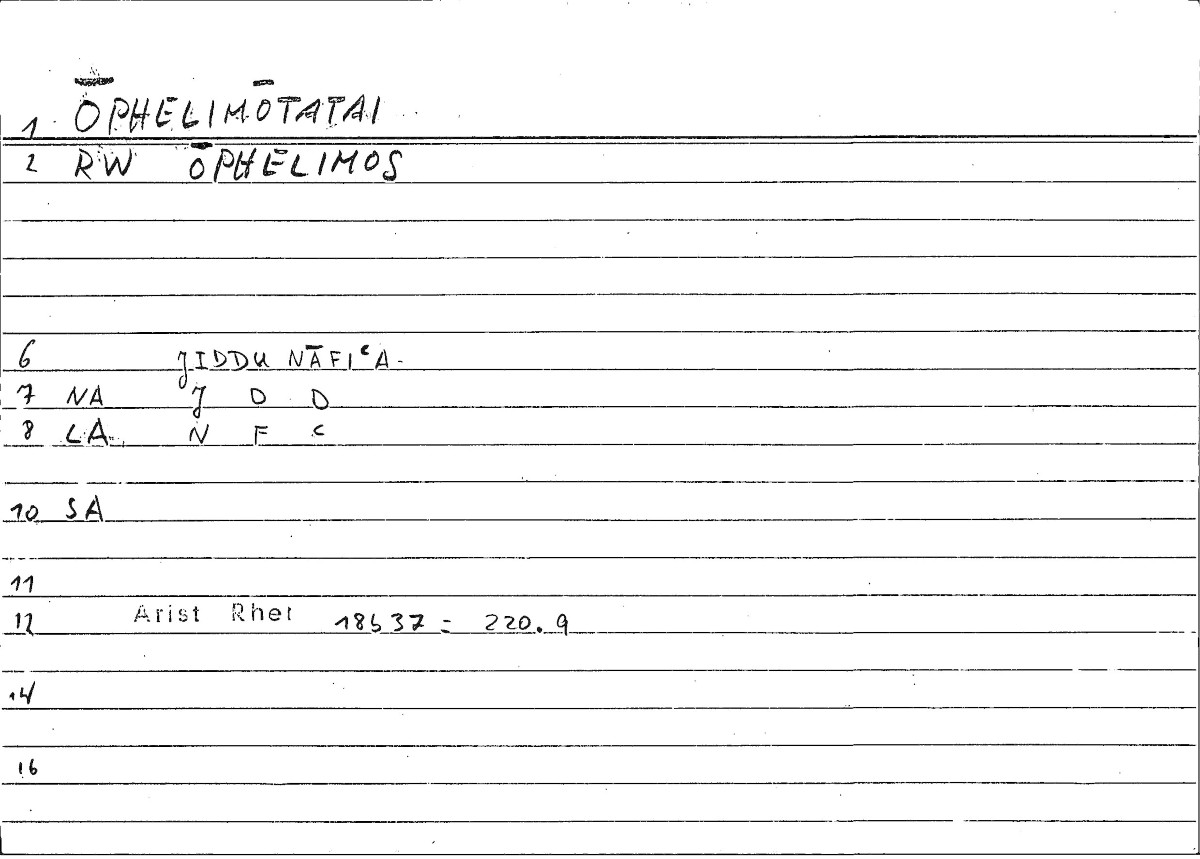 1 ŌPHELIMŌTATAI
2 RW ŌPHELIMOS
6 JIDDU NĀFIʿA
7 NA J D D
8 LA N F ʿ
10 SA
11
12 Arist Rhet 18b37 = 220.9
14
16